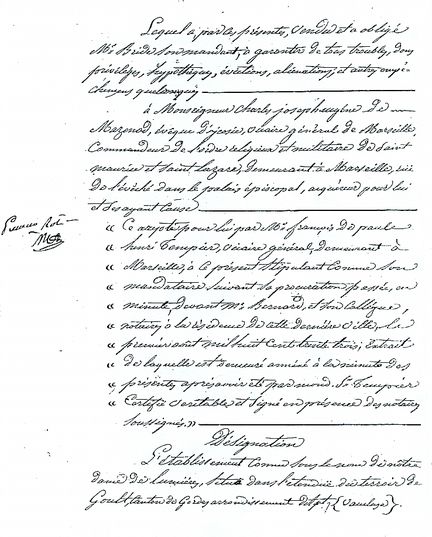 Lequel a par ces présentes, vendu et a obligé
Mr Bride son mandant, à garantir de tous troubles, dons
privilèges, hypothèques, évictions, aliénations, et autres empê-
chemens quelconques
à Monseigneur Charles joseph eugène de
Mazenod, évêque d'Icosie, vicaire général de Marseille,
Commandeur de l'ordre religieux et militaire de Saint
maurice et Saint Lazare, demeurant à Marseille, rue
de l'évêché dans le palais épiscopal, acquéreur pour lui
et ses ayant cause
Premier Rôle
« Ce accepté pour lui par Mr françois de paule
« henri Tempier, vicaire général, demeurant à
« Marseille, à ce présent stipulant comme son
« mandataire suivant sa procuration passée, en
« minute, devant Me Bernard, et son Collègue,
« notaires à la résidence de cette dernière ville, le
« premier août mil huit Cent trente trois; Extrait
« de laquelle est demeuré annexé à la minute des
« présentes, après avoir été par mond. Sr Tempier
« Certifié véritable et Signé en présence des notaires
« soussignés. »
Désignation
L'établissement Connu sous le nom de notre
dame de Lumières, situé dans l'étendue du terroir de
Goult, Canton de Gordes arrondissement d'Apt, (Vaucluse).